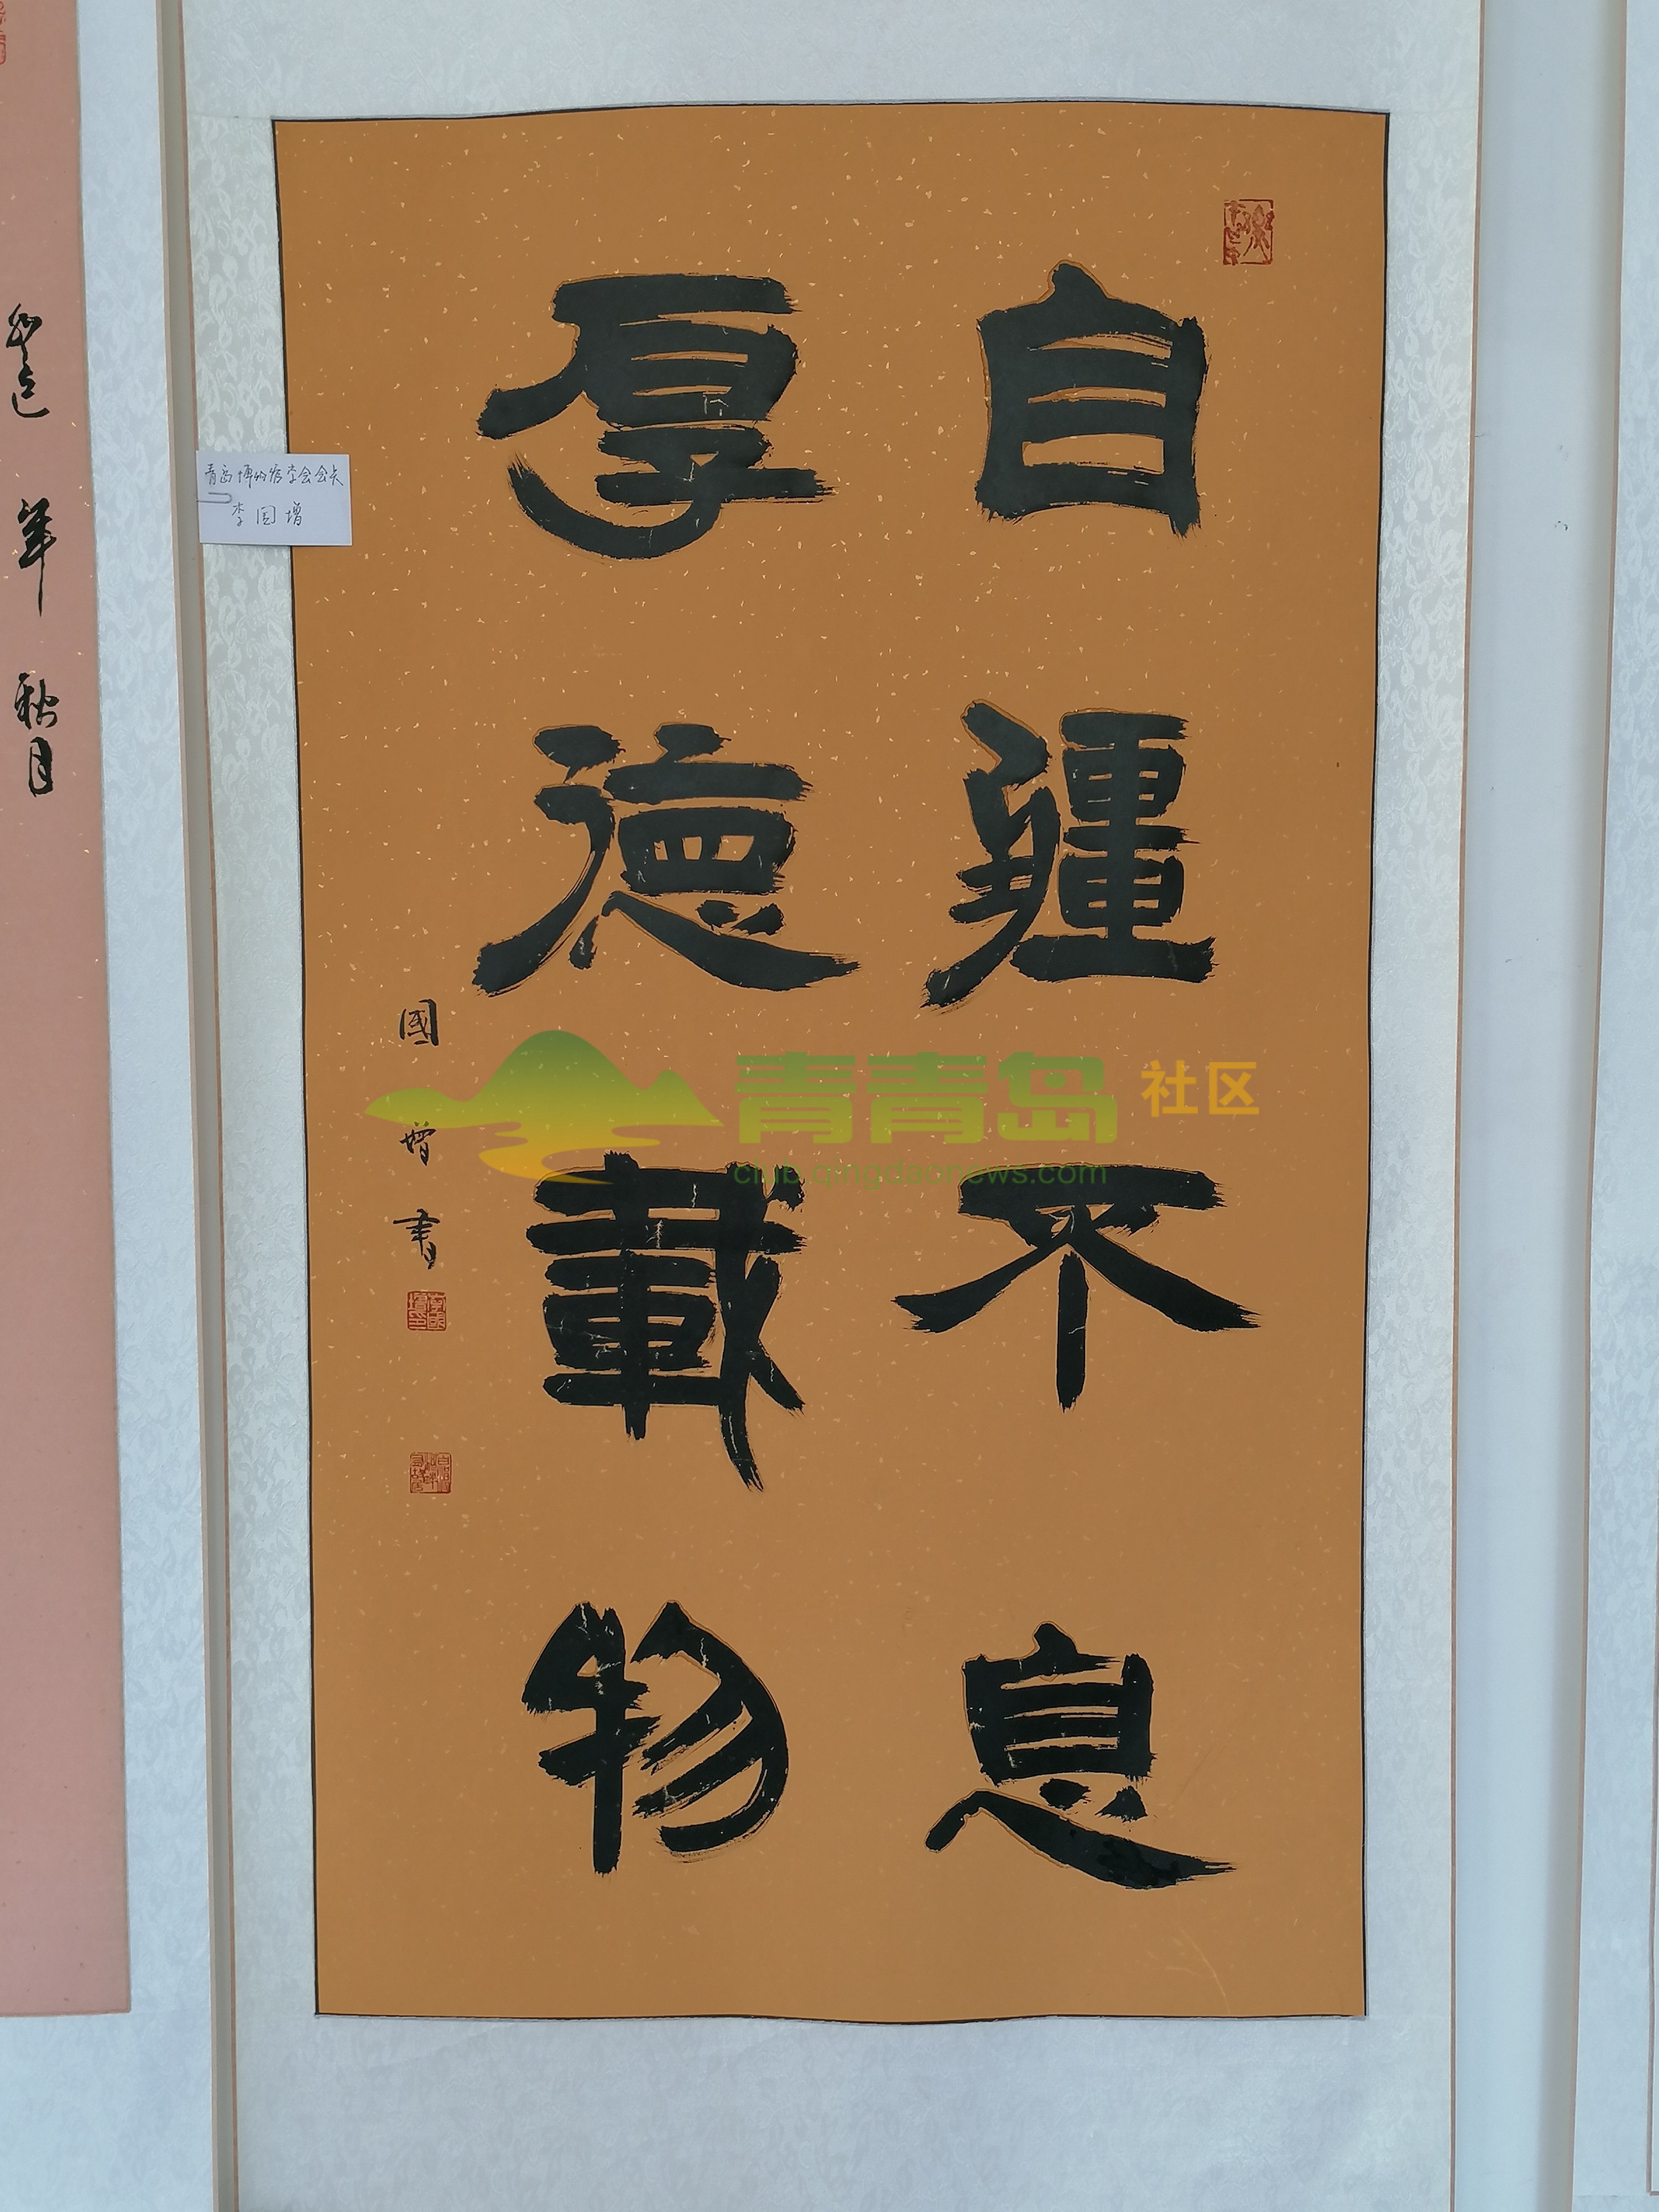 自彊不息
厚德載物
國增書
青岛博物馆学会会员
李国增
癸巳年秋月
青青岛社区
club.qingdaonews.com